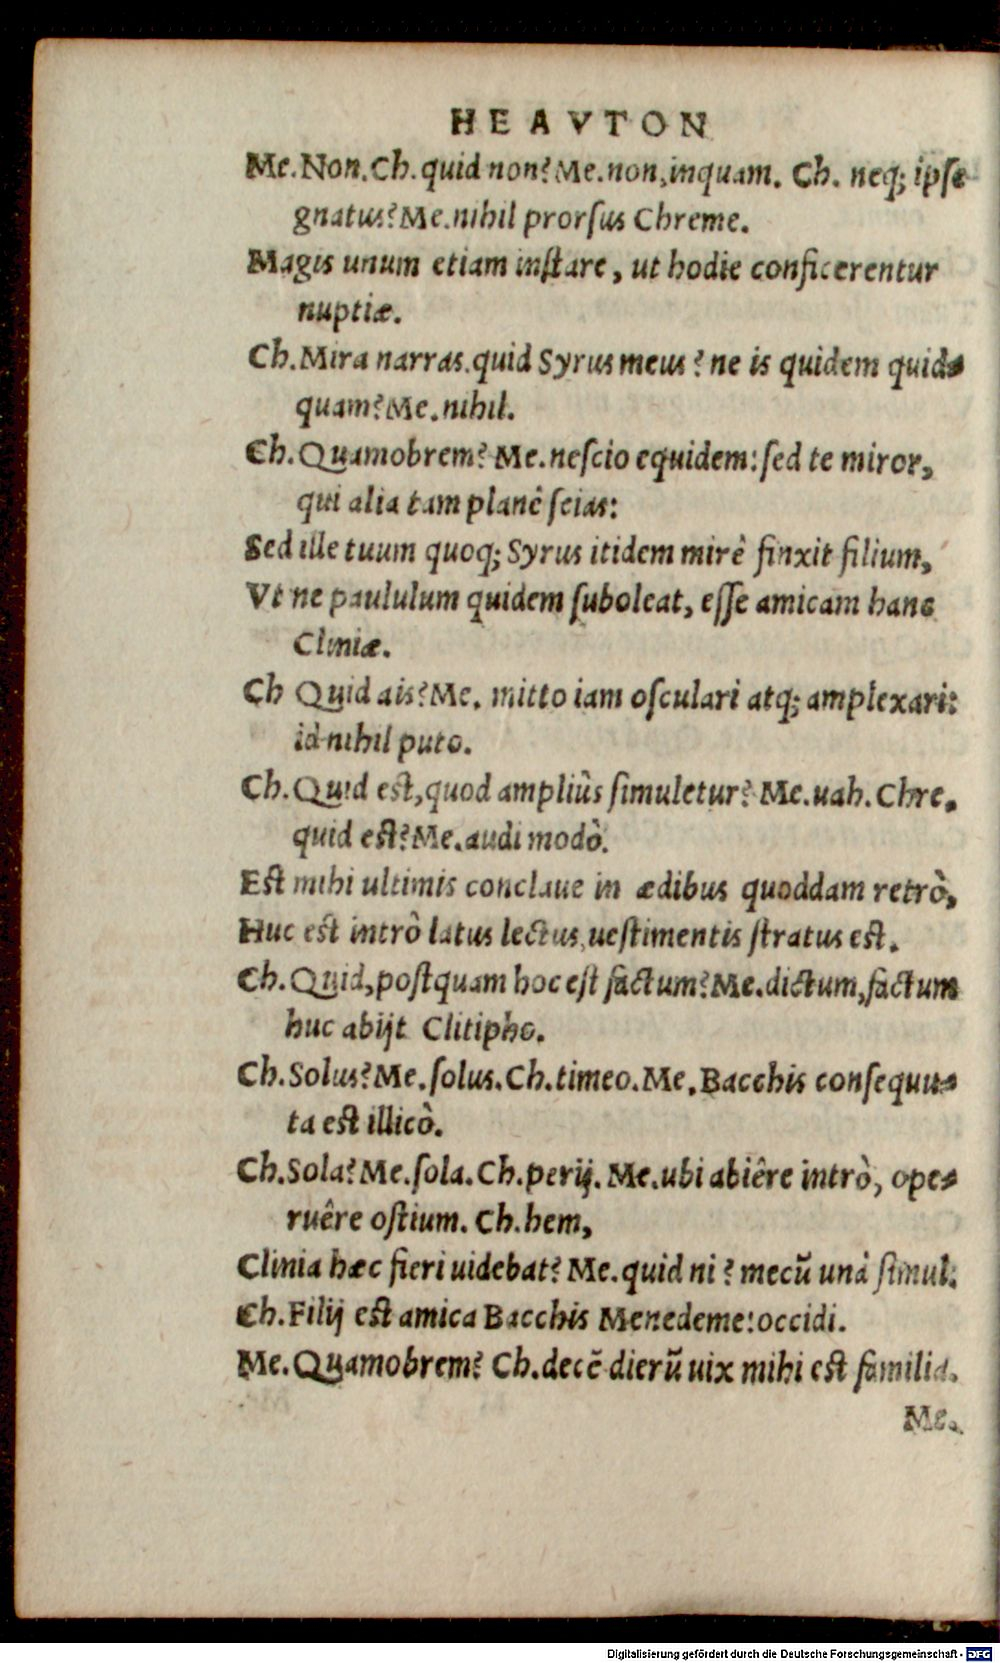 HEAVTON
Me. Non. Ch. quid non? Me. non, inquam. Ch. neq; ipse
gnatus? Me. nihil prorſus Chreme.
Magis unum etiam inſtare, ut hodie conficerentur
nuptiæ.
Ch. Mira narras. quid Syrus meus? ne is quidem quid-
quam? Me. nihil.
Ch. Quamobrem? Me. neſcio equidem: ſed te miror,
qui alia tam planè ſcias:
Sed ille tuum quoq; Syrus itidem mirè finxit filium,
Vt ne paululum quidem ſuboleat, eſſe amicam hanc
Cliniæ.
Ch Quid ais? Me. mitto iam oſculari atq; amplexari:
id nihil puto.
Ch. Quid eſt, quod ampliùs ſimuletur? Me. uah. Chre.
quid eſt? Me. audi modò.
Eſt mihi ultimis conclaue in ædibus quoddam retrò,
Huc eſt intrò latus lectus, ueſtimentis ſtratus eſt.
Ch. Quid, poſtquam hoc eſt factum? Me. dictum, factum
huc abijt Clitipho.
Ch. Solus? Me. ſolus. Ch. timeo. Me. Bacchis conſequu-
ta eſt illicò.
Ch. Sola? Me. ſola. Ch. perij. Me. ubi abiêre intrò, ope-
ruêre oſtium. Ch. hem,
Clinia hæc fieri uidebat? Me. quid ni? mecũ unà ſimul.
Ch. Filij eſt amica Bacchis Menedeme: occidi.
Me. Quamobrem? Ch. decẽ dierũ uix mihi eſt familia.
Me.
Digitalisierung gefördert durch die Deutsche Forschungsgemeinschaft - DFG